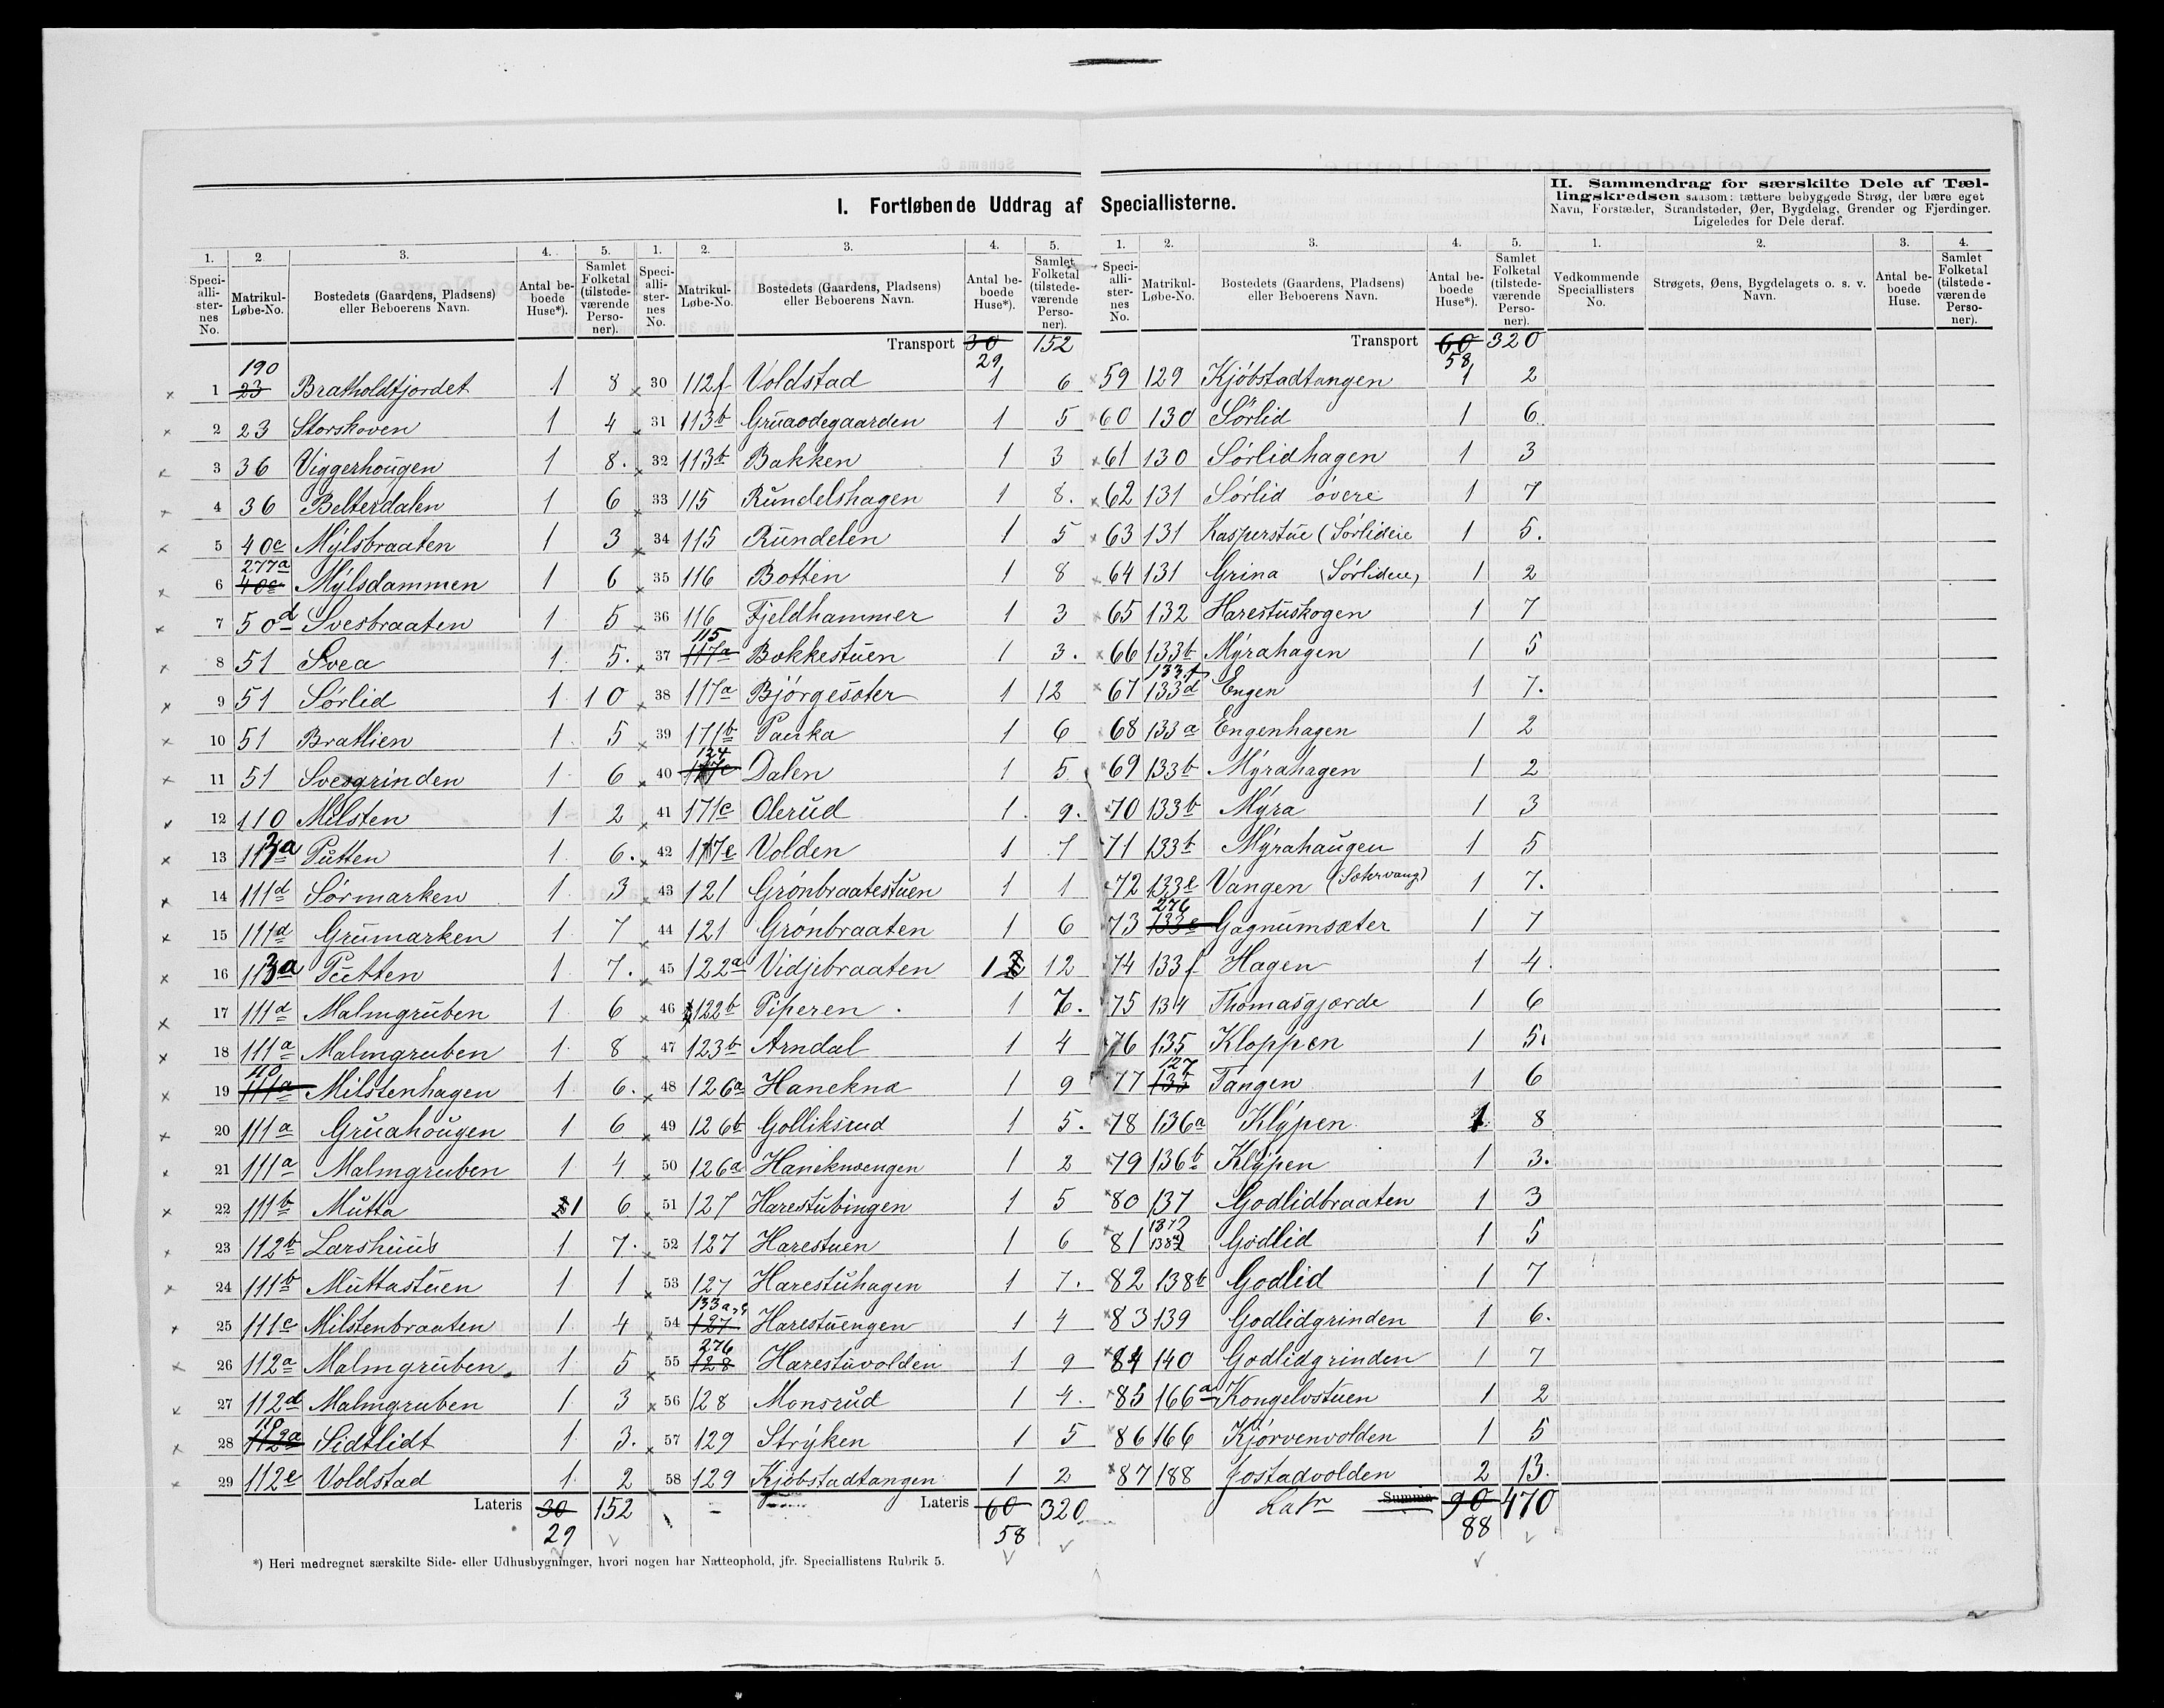 I. Fortløbende Uddrag af Speciallisterne.
II. Sammendrag for særskilte Dele af Tællingskredsen saasom: tættere bebyggede Strøg, der bære eget
Navn, Forstæder, Strandsteder, Øer, Bygdelag, Grender og Fjerdinger.
Ligeledes for Dele deraf.
1. 2 3. 4. 5.
Speciallisternes No. Matrikul-Løbe-No. Bostedets (Gaardens, Pladsens) eller Beboerens Navn. Antal beboede Huse*). Samlet Folketal (tilstedeværende Personer).
1 23 190 Bratholdtfjordet 1 8
2 23 Storskoven 1 4
3 36 Viggerhougen 1 8.
4 36 Belterdalen 1 6
5 40c Mylsbraaten 1 3
6 40c 277a Mylsdammen 1 6
7 50d Svesbraaten 1 5
8 51 Svea 1 5.
9 51 Sørlid 1 10
10 51 Bratlien 1 5
11 51 Svesgrinden 1 6
12 110 Milsten 1 2
13 113a Putten 1 6.
14 111d Sørmarken 1 3
15 111d Grumarken 1 7
16 113a Putten 1 7.
17 111d Malmgruben 1 6
18 111a Malmgruben 1 8
19 111a 110 Milstenhagen 1 6.
20 111a Gruahougen 1 6
21 111a Malmgruben 1 4
22 111b Mutta 1 6
23 112b Larshuus 1 7.
24 111b Muttastuen 1 1
25 111c Milstenbraaten 1 4
26 112a Malmgruben 1 5
27 112d Malmgruben 1 3
28 112a 110 Sidtlidt 1 3.
29 112e Voldstad 1 2
Lateris 30 152
29
1. 2. 3. 4. 5.
Speciallisternes No. Matrikul-Løbe-No. Bostedets (Gaardens, Pladsens) eller Beboerens Navn. Antal beboede Huse*). Samlet Folketal (tilstedeværende Personer).
Transport 30 152
29
30 112f Voldstad 1 6
31 113b Gruaodegaarden 1 5
32 113b Bakken 1 3
33 115 Rundelshagen 1 8.
34 115 Rundelen 1 5
35 116 Botten 1 8
36 116 Fjeldhammer 1 3
37 117a 115 Bokkestuen 1 3.
38 117a Bjørgesæter 1 12
39 171b Pauka 1 6
40 124 Dalen 1 5
41 171c Olerud 1 9.
42 117e Volden 1 7
43 121 Grønbraatestuen 1 1
44 121 Grønbraaten 1 6
45 122a Vidjebraaten 1 12
46 122b Piperen 1 7.
47 123b Arndal 1 4
48 126a Hanekna 1 9
49 126b Golliksrud 1 5.
50 126a Haneknaengen 1 2
51 127 Harestubingen 1 5
52 127 Harestuen 1 6
53 127 Harestuhagen 1 7.
54 127 133a Harestuengen 1 4
55 128 276 Harestuvolden 1 9
56 128 Monsrud 1 4.
57 129 Stryken 1 5
58 129 Kjøbstadtangen 1 2
Lateris 60 320
58
1. 2. 3. 4. 5.
Speciallisternes No. Matrikul-Løbe-No. Bostedets (Gaardens, Pladsens) eller Beboerens Navn. Antal beboede Huse*). Samlet Folketal (tilstedeværende Personer).
Transport 60 320
58
59 129 Kjøbstadtangen 1 2
60 130 Sørlid 1 6
61 130 Sørlidhagen 1 3
62 131 Sørlid øvere 1 7
63 131 Kasperstue (Sørlideie 1 5.
64 131 Grina (Sørlideie) 1 2
65 132 Harestuskogen 1 7
66 133b Myrahagen 1 5
67 133d 133f Engen 1 7.
68 133a Engenhagen 1 2
69 133b Myrahagen 1 2
70 133b Myra 1 3
71 133b Myrahaugen 1 5
72 133e Vangen (Sætervang) 1 7.
73 133e 276 Gagnumsæter 1 7
74 133f Hagen 1 4.
75 134 Thomasgjærde 1 6
76 135 Kloppen 1 5.
77 135 127 Tangen 1 6
78 136a Klypen 1 8
79 136b Klypen 1 3.
80 137 Godlidbraaten 1 3
81 Godlid 1 5
82 138b Godlid 1 7
83 139 Godlidgrinden 1 6.
84 140 Godlidgrinden 1 7
85 166a Kongelvstuen 1 2
86 166 Kjørvenvolden 1 5
87 188 Jostadvolden 2 13.
Latr Summa 90 470
88
1. 2. 3. 4.
Vedkommende Speciallisters No. Strøgets, Øens, Bygdelagets o. s. v. Navn. Antal beboede Huse. Samlet Folketal (tilstedeværende Personer).
*) Heri medregnet særskilte Side- eller Udhusbygninger, hvori nogen har Natteophold, jfr. Speciallistens Rubrik 5.